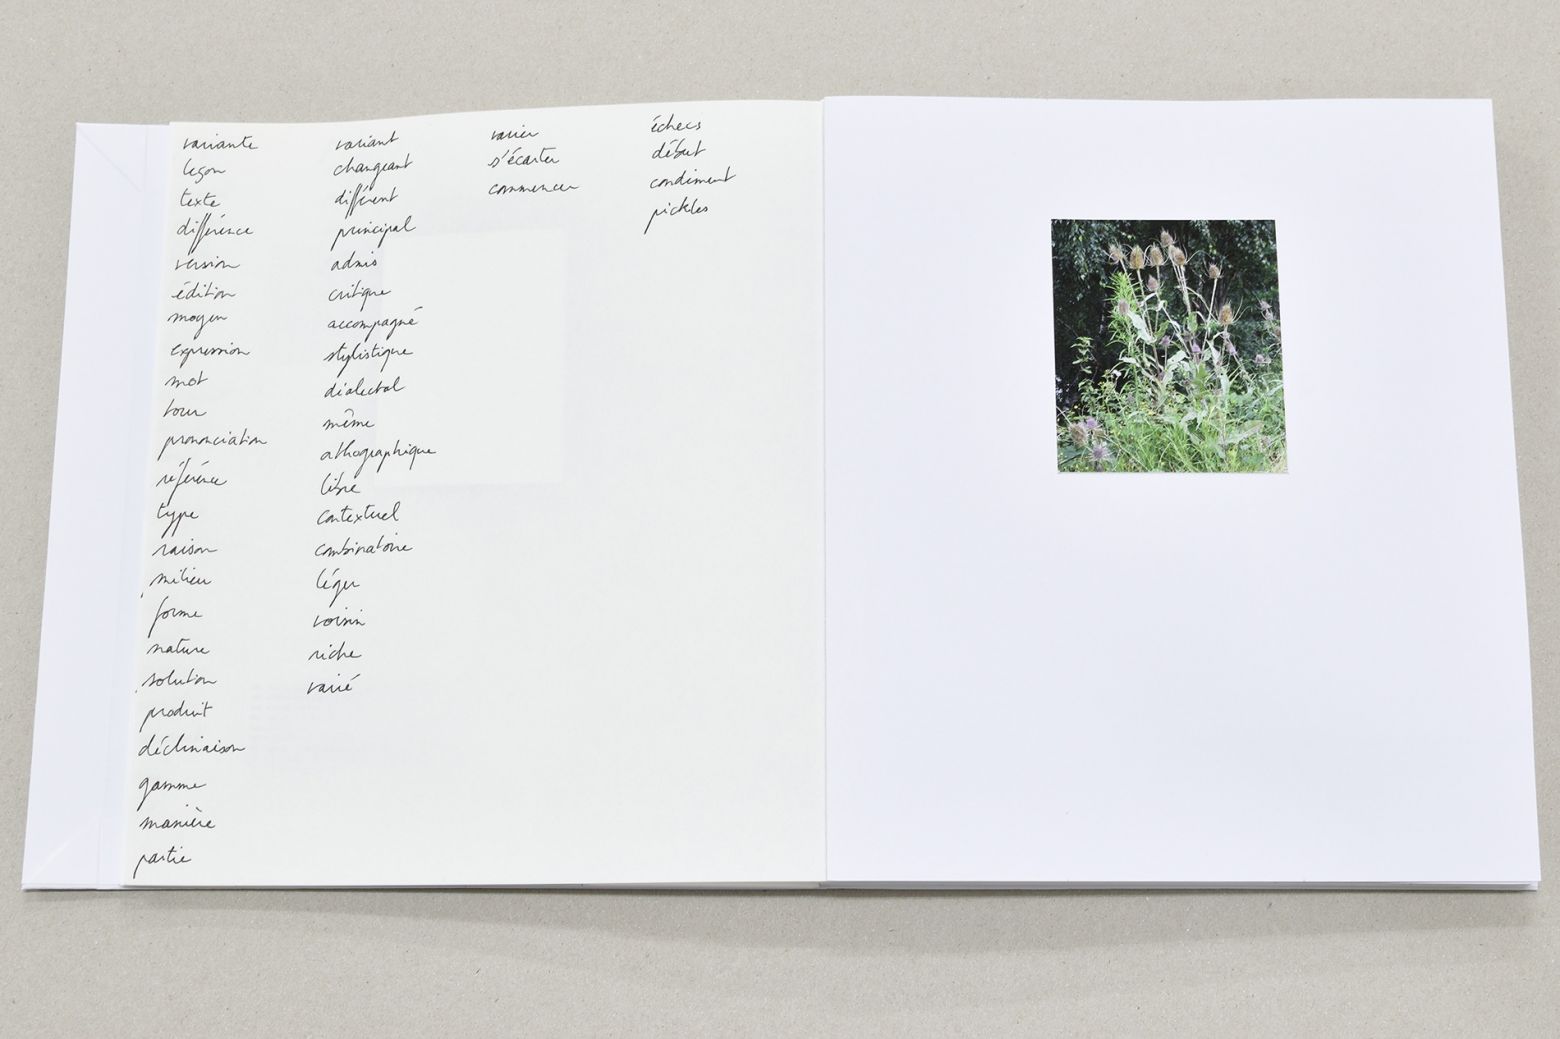 variante
leçon
texte
différence
version
édition
moyen
expression
mot
tour
prononciation
référence
type
raison
milieu
forme
nature
solution
produit
déclinaison
gamme
manière
partie
variant
changeant
différent
principal
admis
critique
accompagné
stylistique
dialectal
même
orthographique
libre
contextuel
combinatoire
léger
voisin
riche
varié
varier
s'écarter
commencer
échecs
début
condiment
pickles